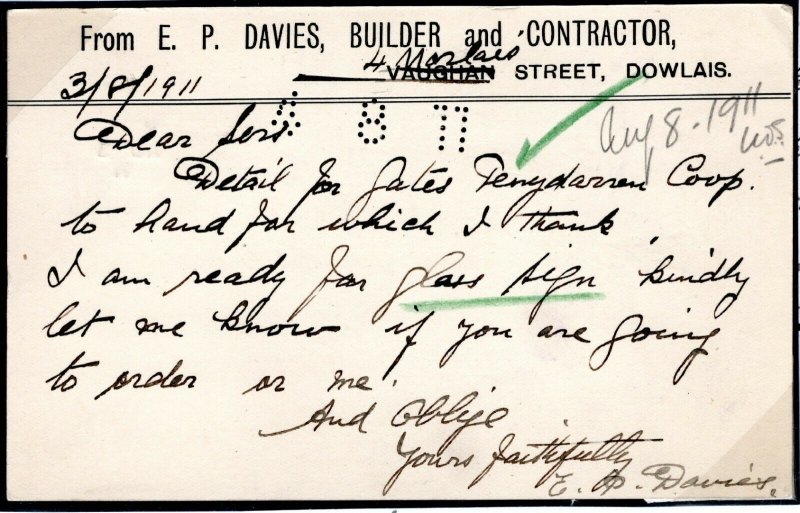 From E. P. DAVIES, BUILDER and CONTRACTOR,
4 Morlais
VAUGHAN STREET, DOWLAIS.
3/8/1911
4 8 11
Aug 8. 1911
Dear Sirs
Detail for Gates Penydarren Coop.
to hand for which I thank
I am ready for glass sign kindly
let me know if you are going
to order or me.
And Oblige
Yours faithfully
E. P. Davies.